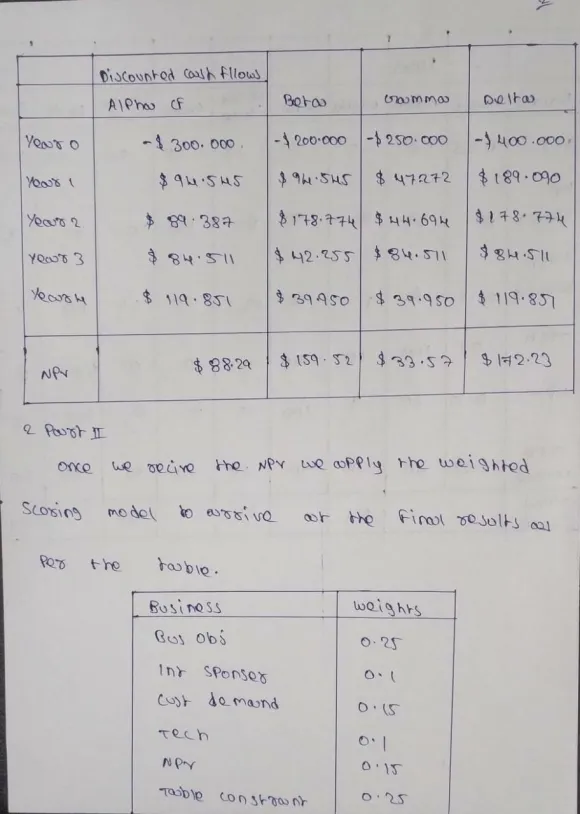 Discounted cash fllows
Alpha CF Beta Gramma Delta
Year 0 -$ 300.000. -$ 200.000 -$ 250.000 -$ 400.000.
Year 1 $ 94.545 $ 94.545 $ 47272 $ 189.090
Year 2 $ 89.387 $ 178.774 $ 44.694 $ 178.774
Year 3 $ 84.511 $ 42.255 $ 84.511 $ 84.511
Year 4 $ 119.851 $ 39.950 $ 39.950 $ 119.851
NPV $ 88.29 $ 159.52 $ 33.57 $ 172.23
2 Part II
Once we recive the NPV we apply the weighted
Scoring model to arrive at the final results as
Per the table.
Business weights
Bus obj 0.25
Int sponser 0.1
Cust demand 0.15
Tech 0.1
NPV 0.15
Table constraint 0.25